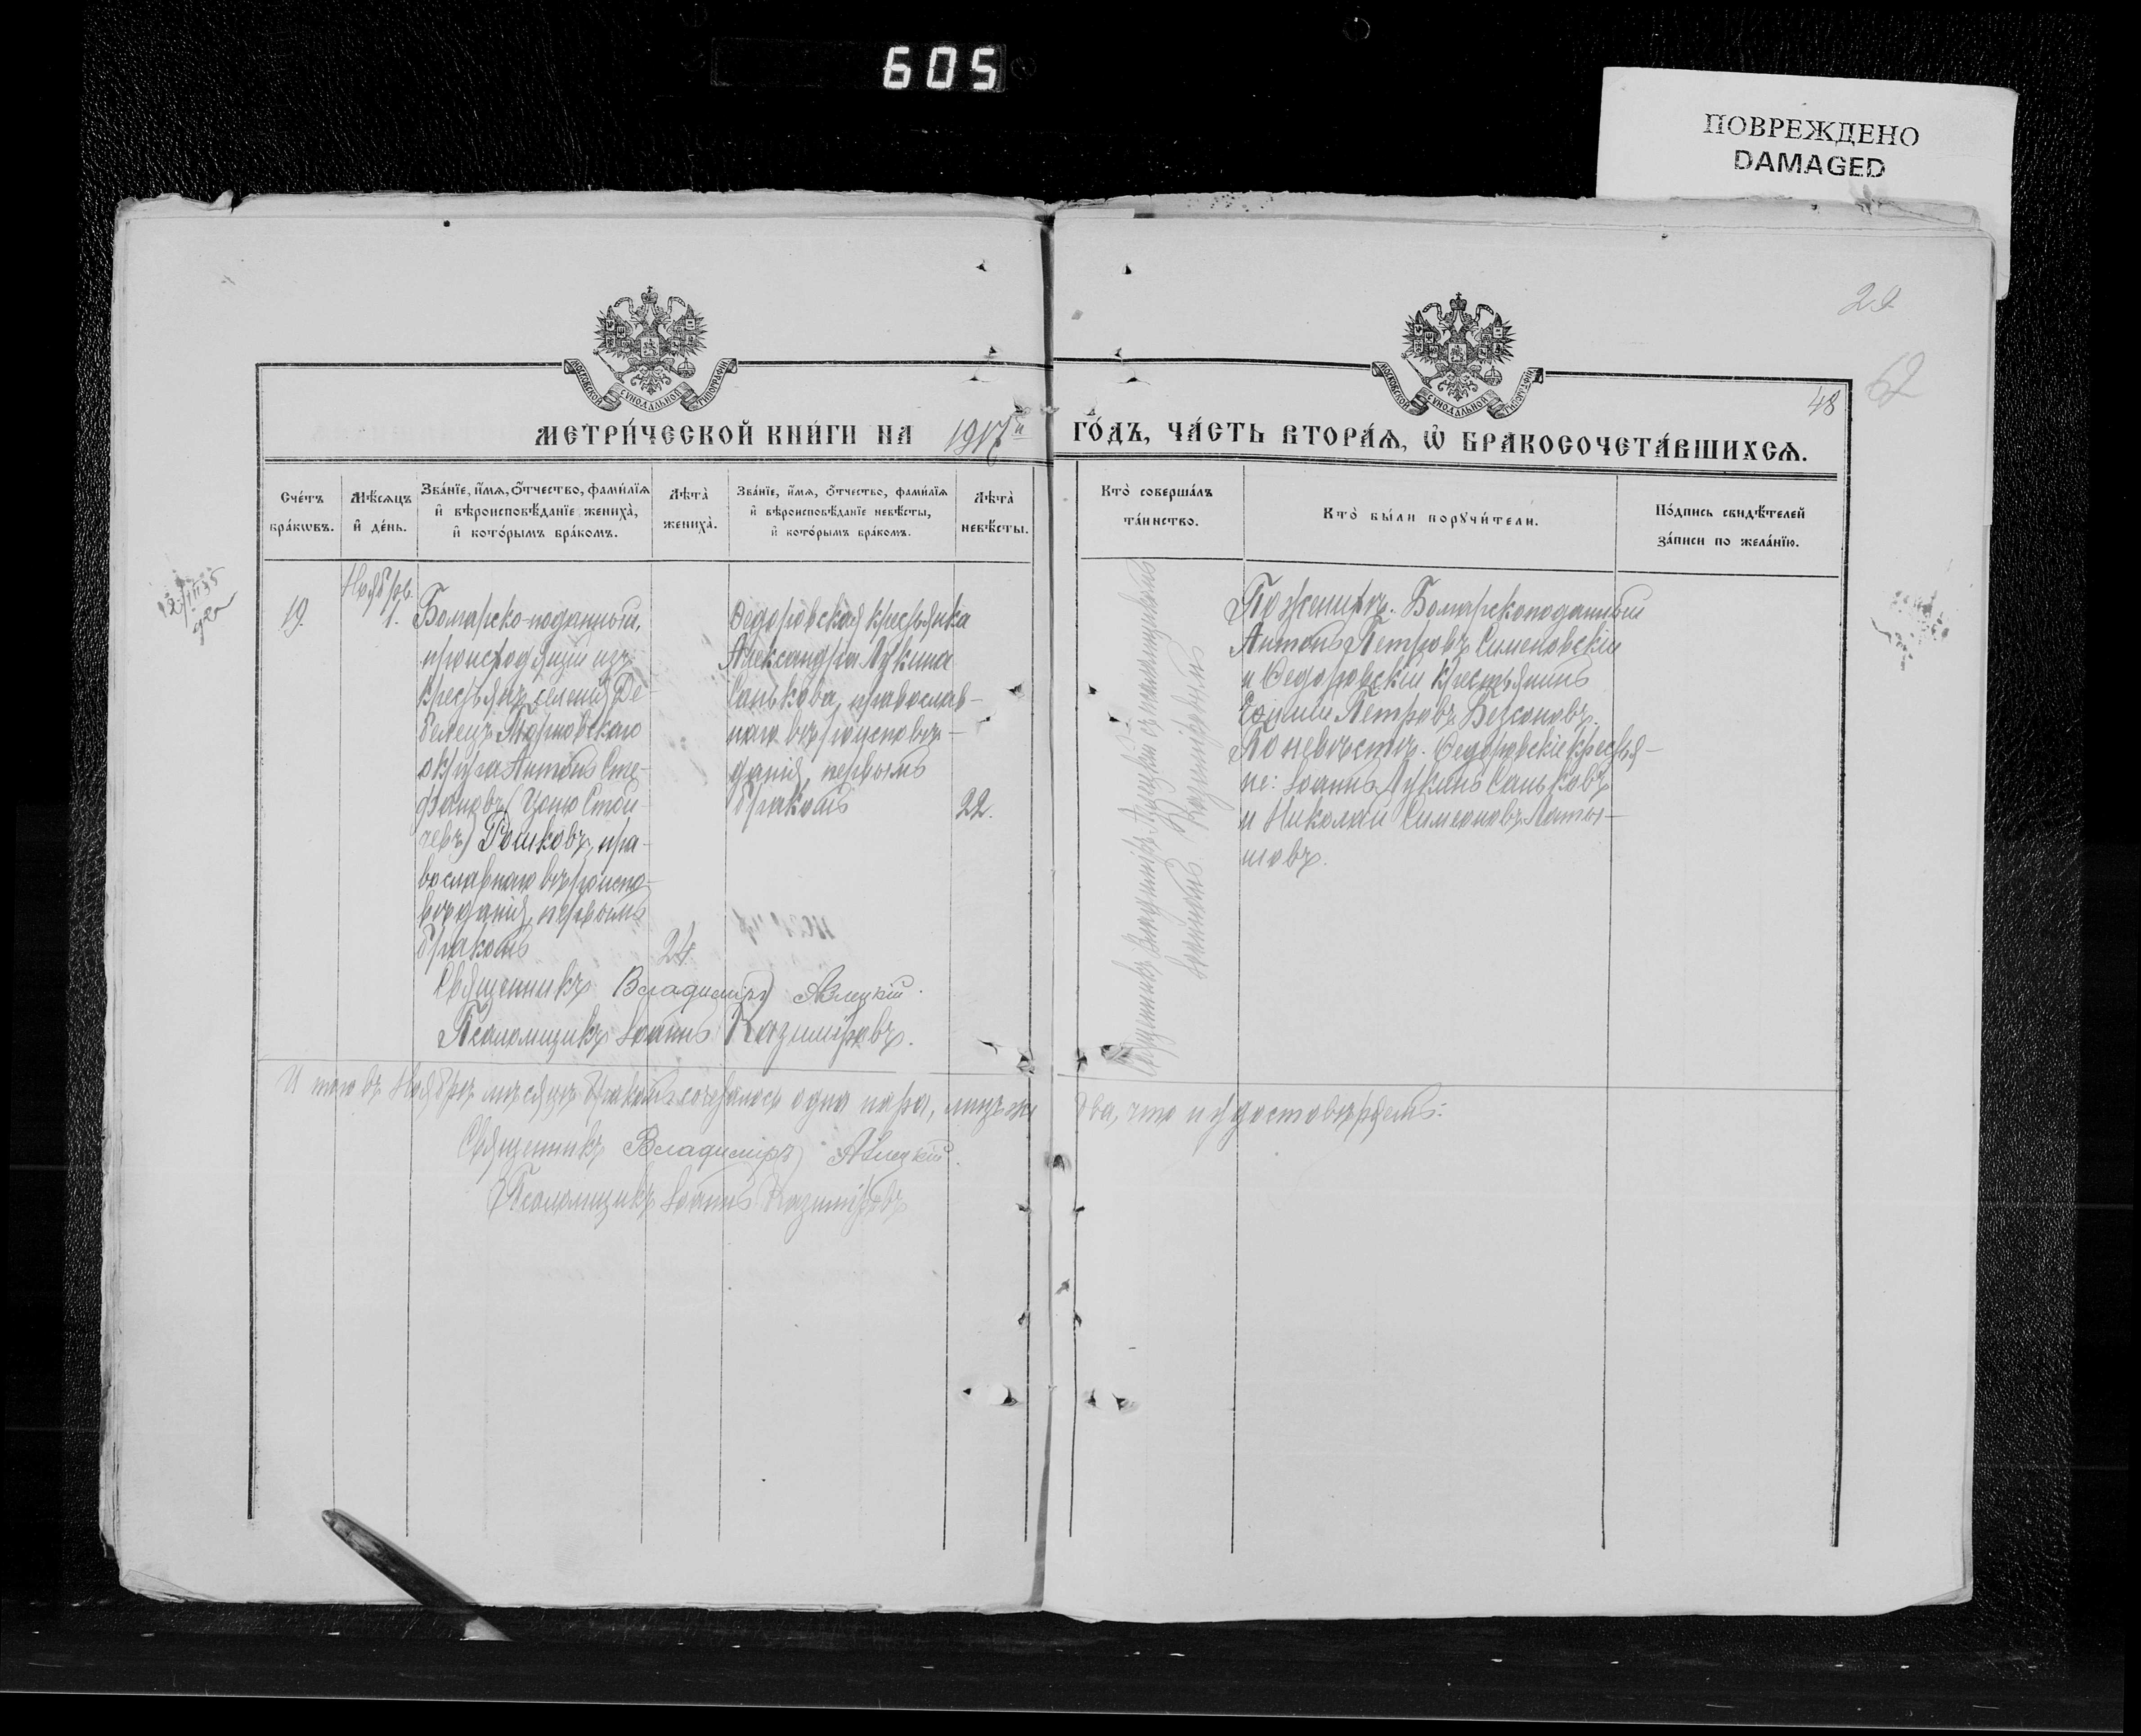 605
ПОВРЕЖДЕНО
DAMAGED
29
62
48
МОСКОВСКОЙ СѴНОДАЛЬНОЙ ТИПОГРАФІИ
МОСКОВСКОЙ СѴНОДАЛЬНОЙ ТИПОГРАФІИ
МЕТРИ́ЧЕСКОЙ КНИ́ГИ НА 1917й ГО́ДЪ, ЧА́СТЬ ВТОРА́Ѧ, Ѽ БРАКОСОЧЕТА́ВШИХСѦ.
Сче́тъ бра́кѡвъ.
Мѣ́сѧцъ и҆ де́нь.
Зва́нїе, и҆́мѧ, ѻ҆́тчество, фами́лїѧ и҆ вѣроисповѣ́данїе жениха̀, и҆ кото́рымъ бра́комъ.
Лѣта̀ жениха̀.
Зва́нїе, и҆́мѧ, ѻ҆́тчество, фами́лїѧ и҆ вѣроисповѣ́данїе невѣ́сты, и҆ кото́рымъ бра́комъ.
Лѣта̀ невѣ́сты.
Кто̀ соверша́лъ та́инство.
Кто̀ бы́ли порꙋчи́тели.
По́дпись свидѣ́телей за́писи по жела́нїю.
19.
Ноябрь.
1.
Болгарско-поданный,
происходящій изъ
крестьянъ селенія Де-
белецъ Тырновскаго
округа Антонъ Сте-
фановъ (Цоню Стой-
чевъ) Рошковъ, пра-
вославнаго вѣроиспо-
вѣданія, первымъ
бракомъ
24.
Ѳедоровская крестьянка
Александра Лукина
Санькова, православ-
наго вѣроисповѣ-
данія, первымъ
бракомъ
22.
Священникъ Владиміръ
псаломщикомъ
Іоанномъ Казиміровымъ
По женихѣ: Болгарскоподанный
Антонъ Петровъ Сименовскій
и Ѳедоровскій крестьянинъ
Петровъ Безсоновъ.
По невѣстѣ: Ѳедоровскіе крестья-
не: Іоаннъ Лукинъ Саньковъ
и Николай Симеоновъ Латы-
шовъ.
Священникъ Владиміръ
Псаломщикъ Іоаннъ Казиміровъ.
Итого въ Ноябрѣ мѣсяцѣ бракомъ сочеталось одна пара, лицъ же два, что и удостовѣряемъ:
Священникъ Владиміръ
Псаломщикъ Іоаннъ Казиміровъ